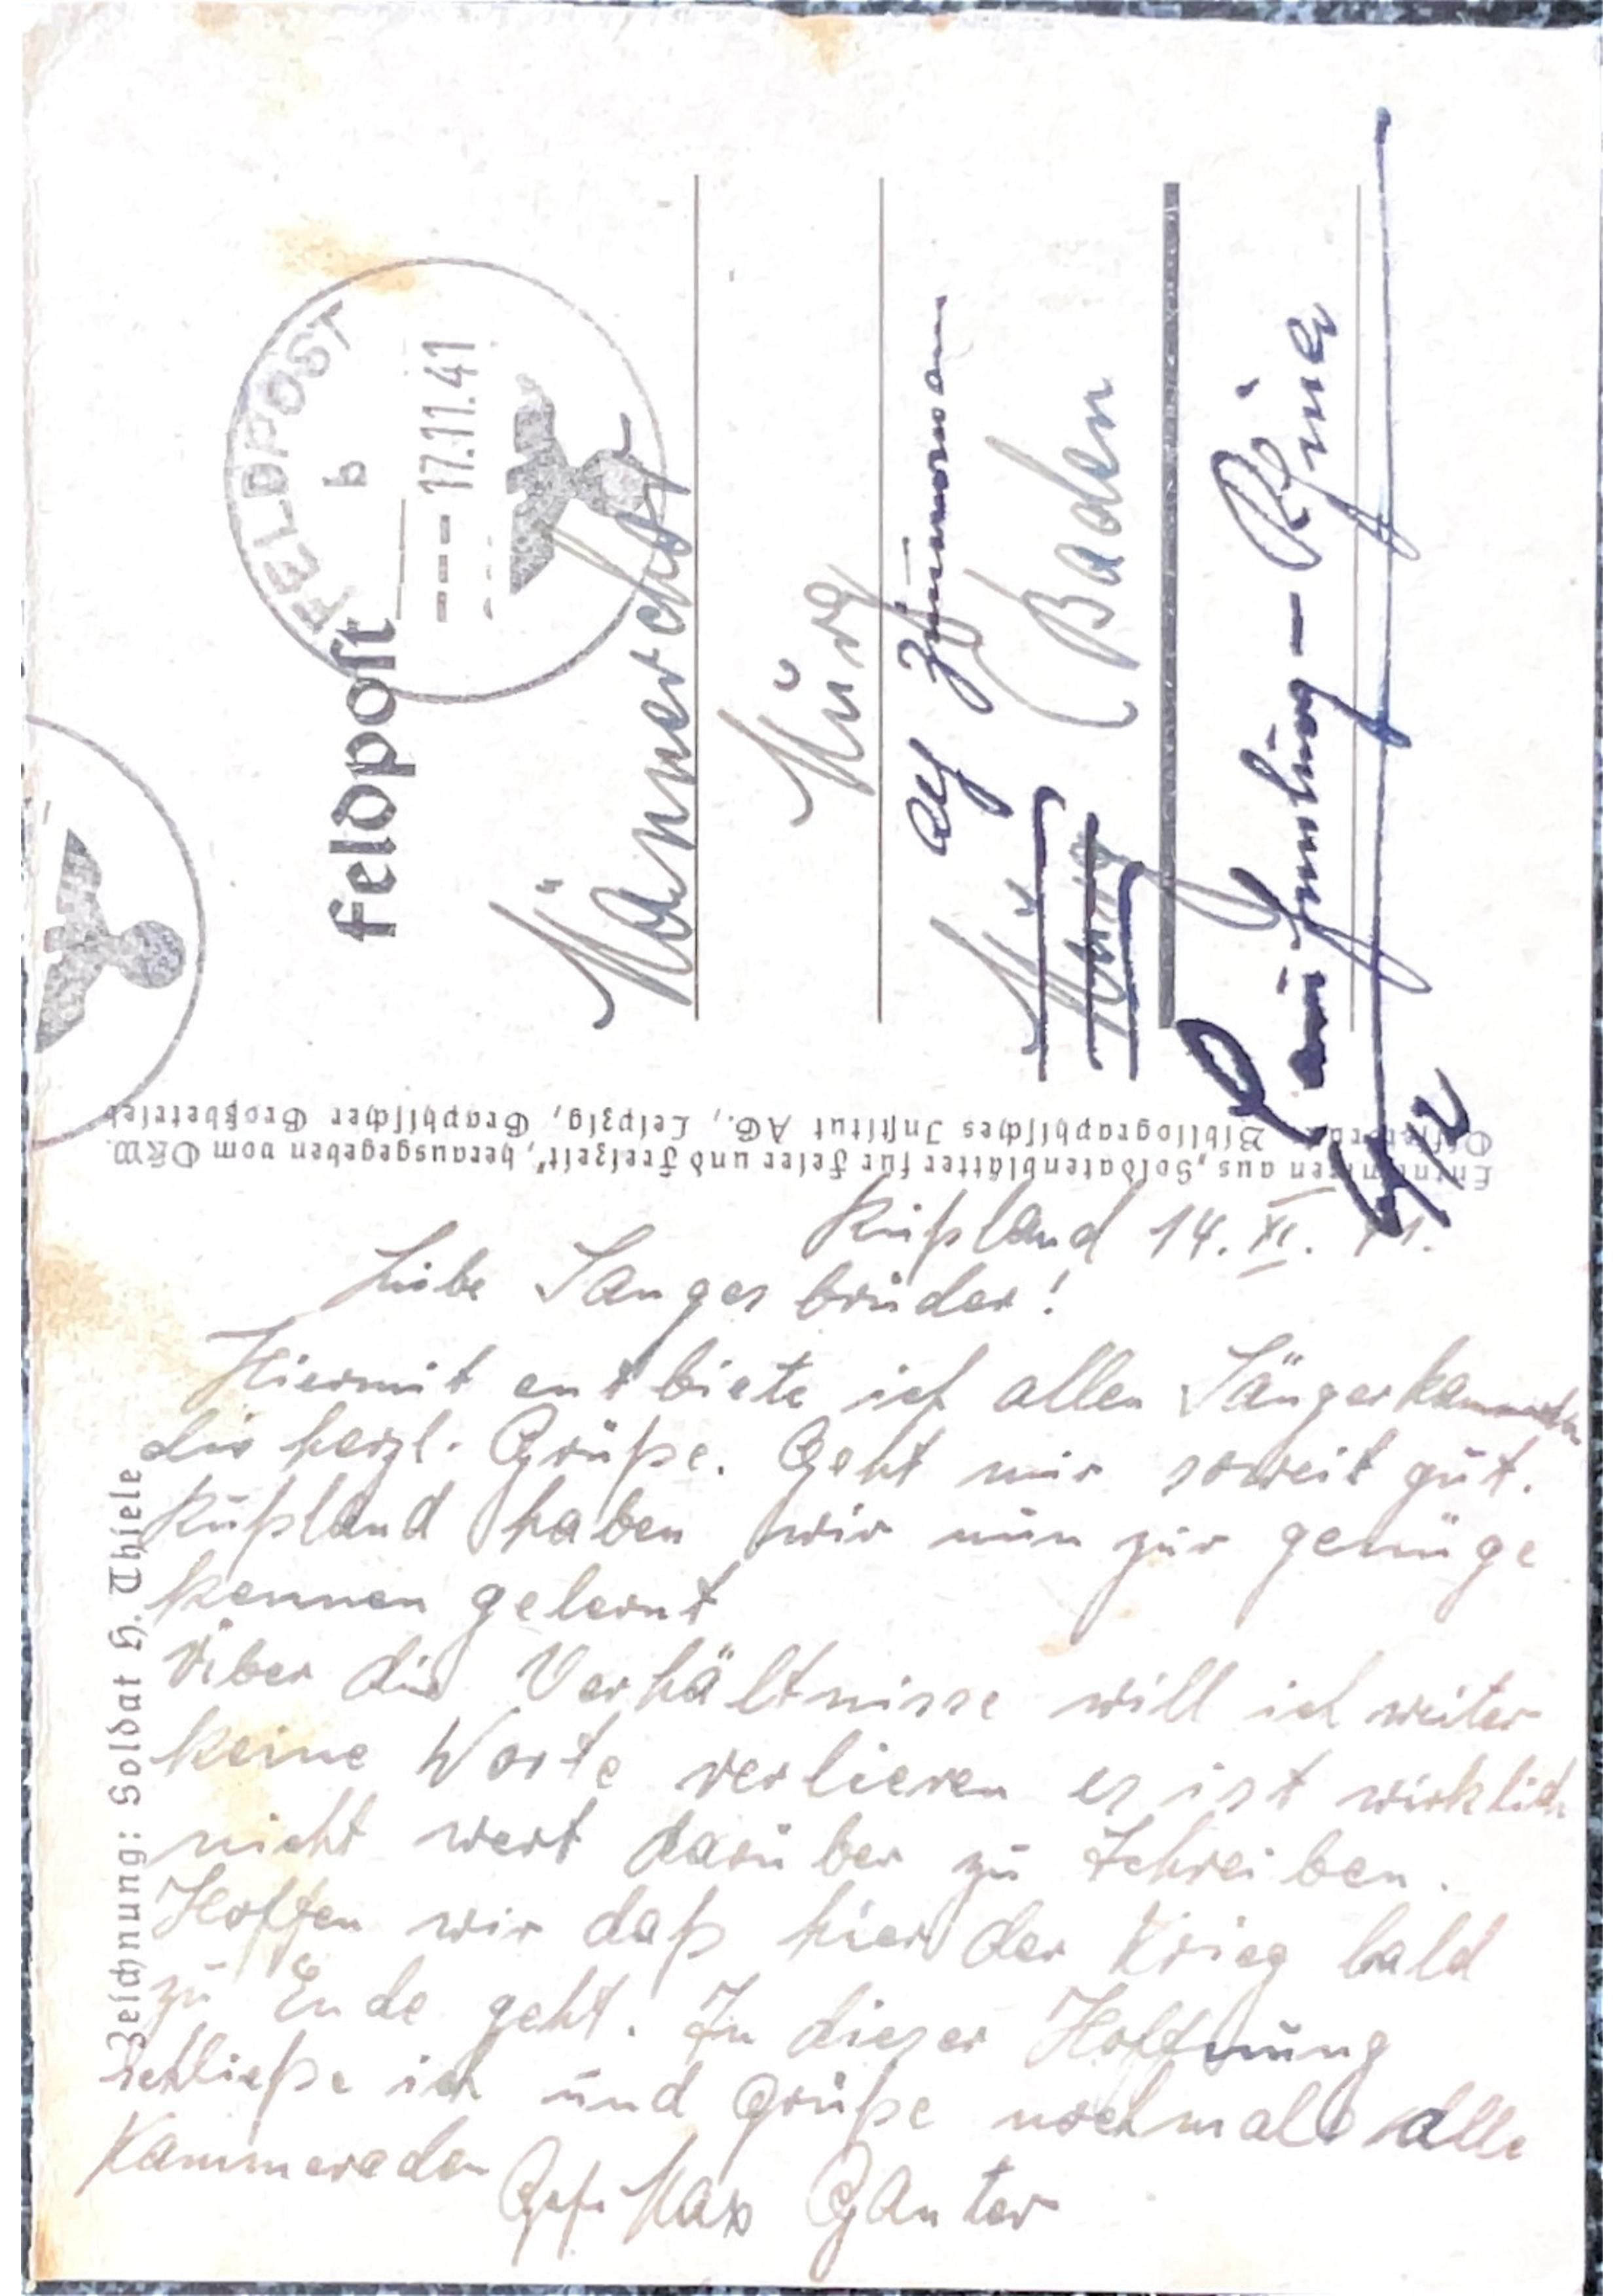 Feldpost
FELDPOST
b
17.11.41
Männerchor
Murg
Rlf Zimmermann
Murg
(Baden
Laufenburg - Rhina
Entnommen aus „Soldatenblätter für Feier und Freizeit“, herausgegeben vom OKW.
Offsetdruck: Bibliographisches Institut AG., Leipzig, Graphischer Großbetrieb
Zeichnung: Soldat H. Thiele
Rußland 14. XI. 41.
Liebe Sanges brüder!
Hiermit entbiete ich allen Sängerkammeraden
die herzl. Grüße. Geht mir soweit gut.
Rußland haben wir nun zur genüge
kennen gelernt
Über die Verhältnisse will ich weiter
keine Worte verlieren es ist wirklich
nicht wert darüber zu schreiben.
Hoffen wir daß hier der Krieg bald
zu Ende geht. In dieser Hoffnung
schließe ich und grüße nochmals alle
Kammeraden
Gefr. Max Ganter